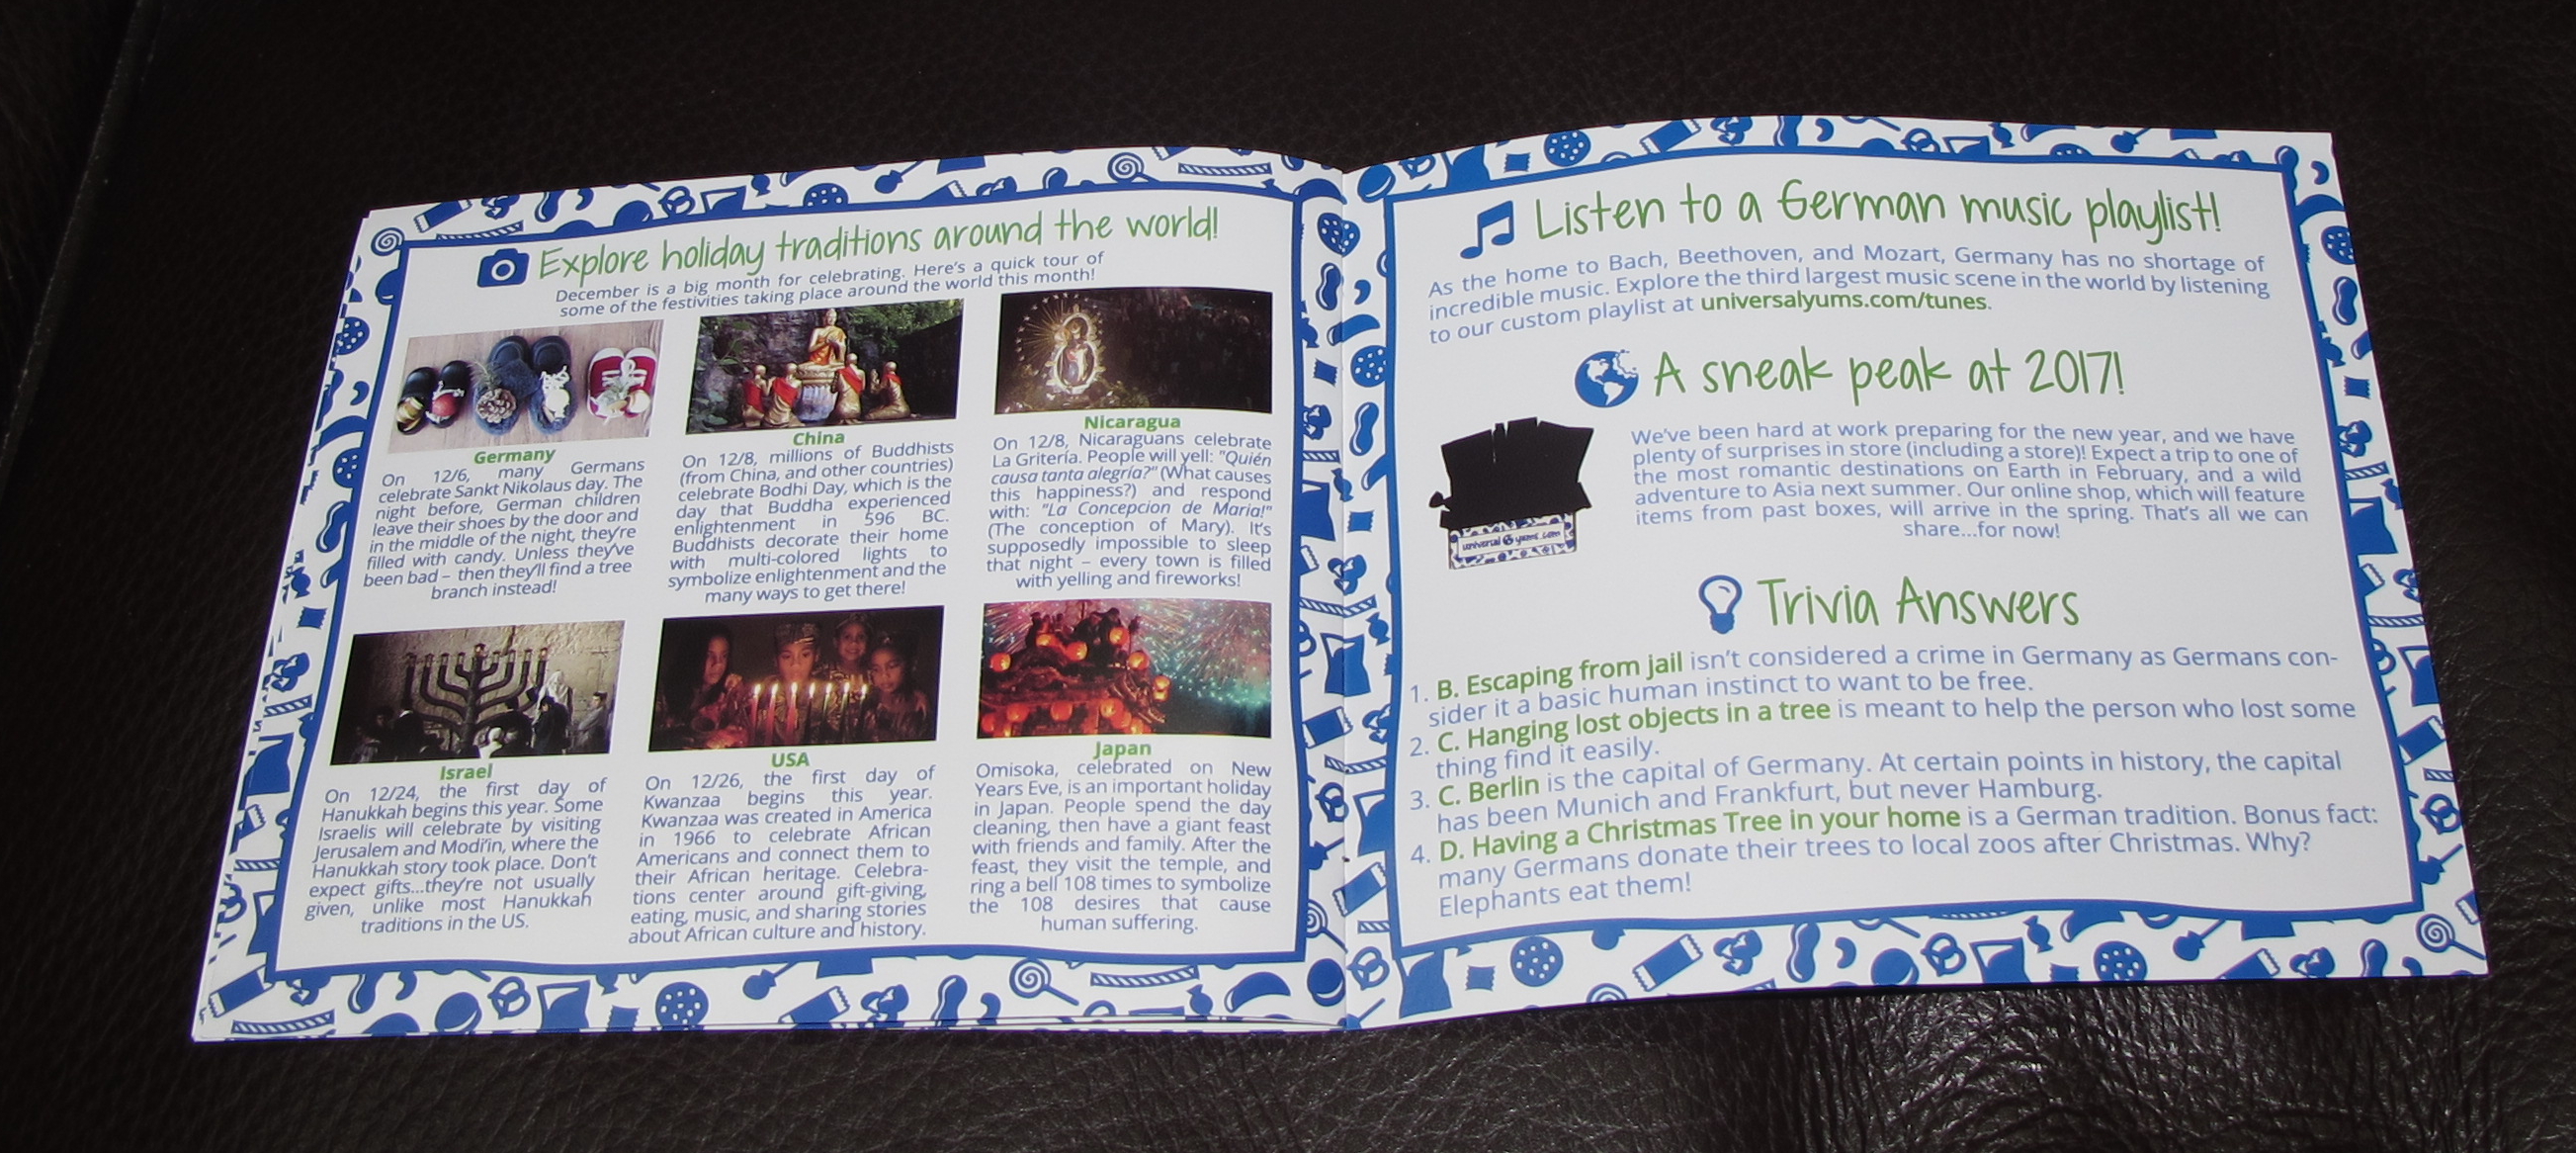 Explore holiday traditions around the world!
December is a big month for celebrating. Here's a quick tour of
some of the festivities taking place around the world this month!
Germany
On 12/6, many Germans
celebrate Sankt Nikolaus day. The
night before, German children
leave their shoes by the door and
in the middle of the night, they're
filled with candy. Unless they've
been bad – then they'll find a tree
branch instead!
China
On 12/8, millions of Buddhists
(from China, and other countries)
celebrate Bodhi Day, which is the
day that Buddha experienced
enlightenment in 596 BC.
Buddhists decorate their home
with multi-colored lights to
symbolize enlightenment and the
many ways to get there!
Nicaragua
On 12/8, Nicaraguans celebrate
La Gritería. People will yell: "Quién
causa tanta alegría?" (What causes
this happiness?) and respond
with: "La Concepcion de Maria!"
(The conception of Mary). It's
supposedly impossible to sleep
that night – every town is filled
with yelling and fireworks!
Israel
On 12/24, the first day of
Hanukkah begins this year. Some
Israelis will celebrate by visiting
Jerusalem and Modi'in, where the
Hanukkah story took place. Don't
expect gifts...they're not usually
given, unlike most Hanukkah
traditions in the US.
USA
On 12/26, the first day of
Kwanzaa begins this year.
Kwanzaa was created in America
in 1966 to celebrate African
Americans and connect them to
their African heritage. Celebra-
tions center around gift-giving,
eating, music, and sharing stories
about African culture and history.
Japan
Omisoka, celebrated on New
Years Eve, is an important holiday
in Japan. People spend the day
cleaning, then have a giant feast
with friends and family. After the
feast, they visit the temple, and
ring a bell 108 times to symbolize
the 108 desires that cause
human suffering.
Listen to a German music playlist!
As the home to Bach, Beethoven, and Mozart, Germany has no shortage of
incredible music. Explore the third largest music scene in the world by listening
to our custom playlist at universalyums.com/tunes.
A sneak peak at 2017!
We've been hard at work preparing for the new year, and we have
plenty of surprises in store (including a store)! Expect a trip to one of
the most romantic destinations on Earth in February, and a wild
adventure to Asia next summer. Our online shop, which will feature
items from past boxes, will arrive in the spring. That's all we can
share...for now!
universal yums.com
Trivia Answers
1. B. Escaping from jail isn't considered a crime in Germany as Germans con-
sider it a basic human instinct to want to be free.
2. C. Hanging lost objects in a tree is meant to help the person who lost some
thing find it easily.
3. C. Berlin is the capital of Germany. At certain points in history, the capital
has been Munich and Frankfurt, but never Hamburg.
4. D. Having a Christmas Tree in your home is a German tradition. Bonus fact:
many Germans donate their trees to local zoos after Christmas. Why?
Elephants eat them!